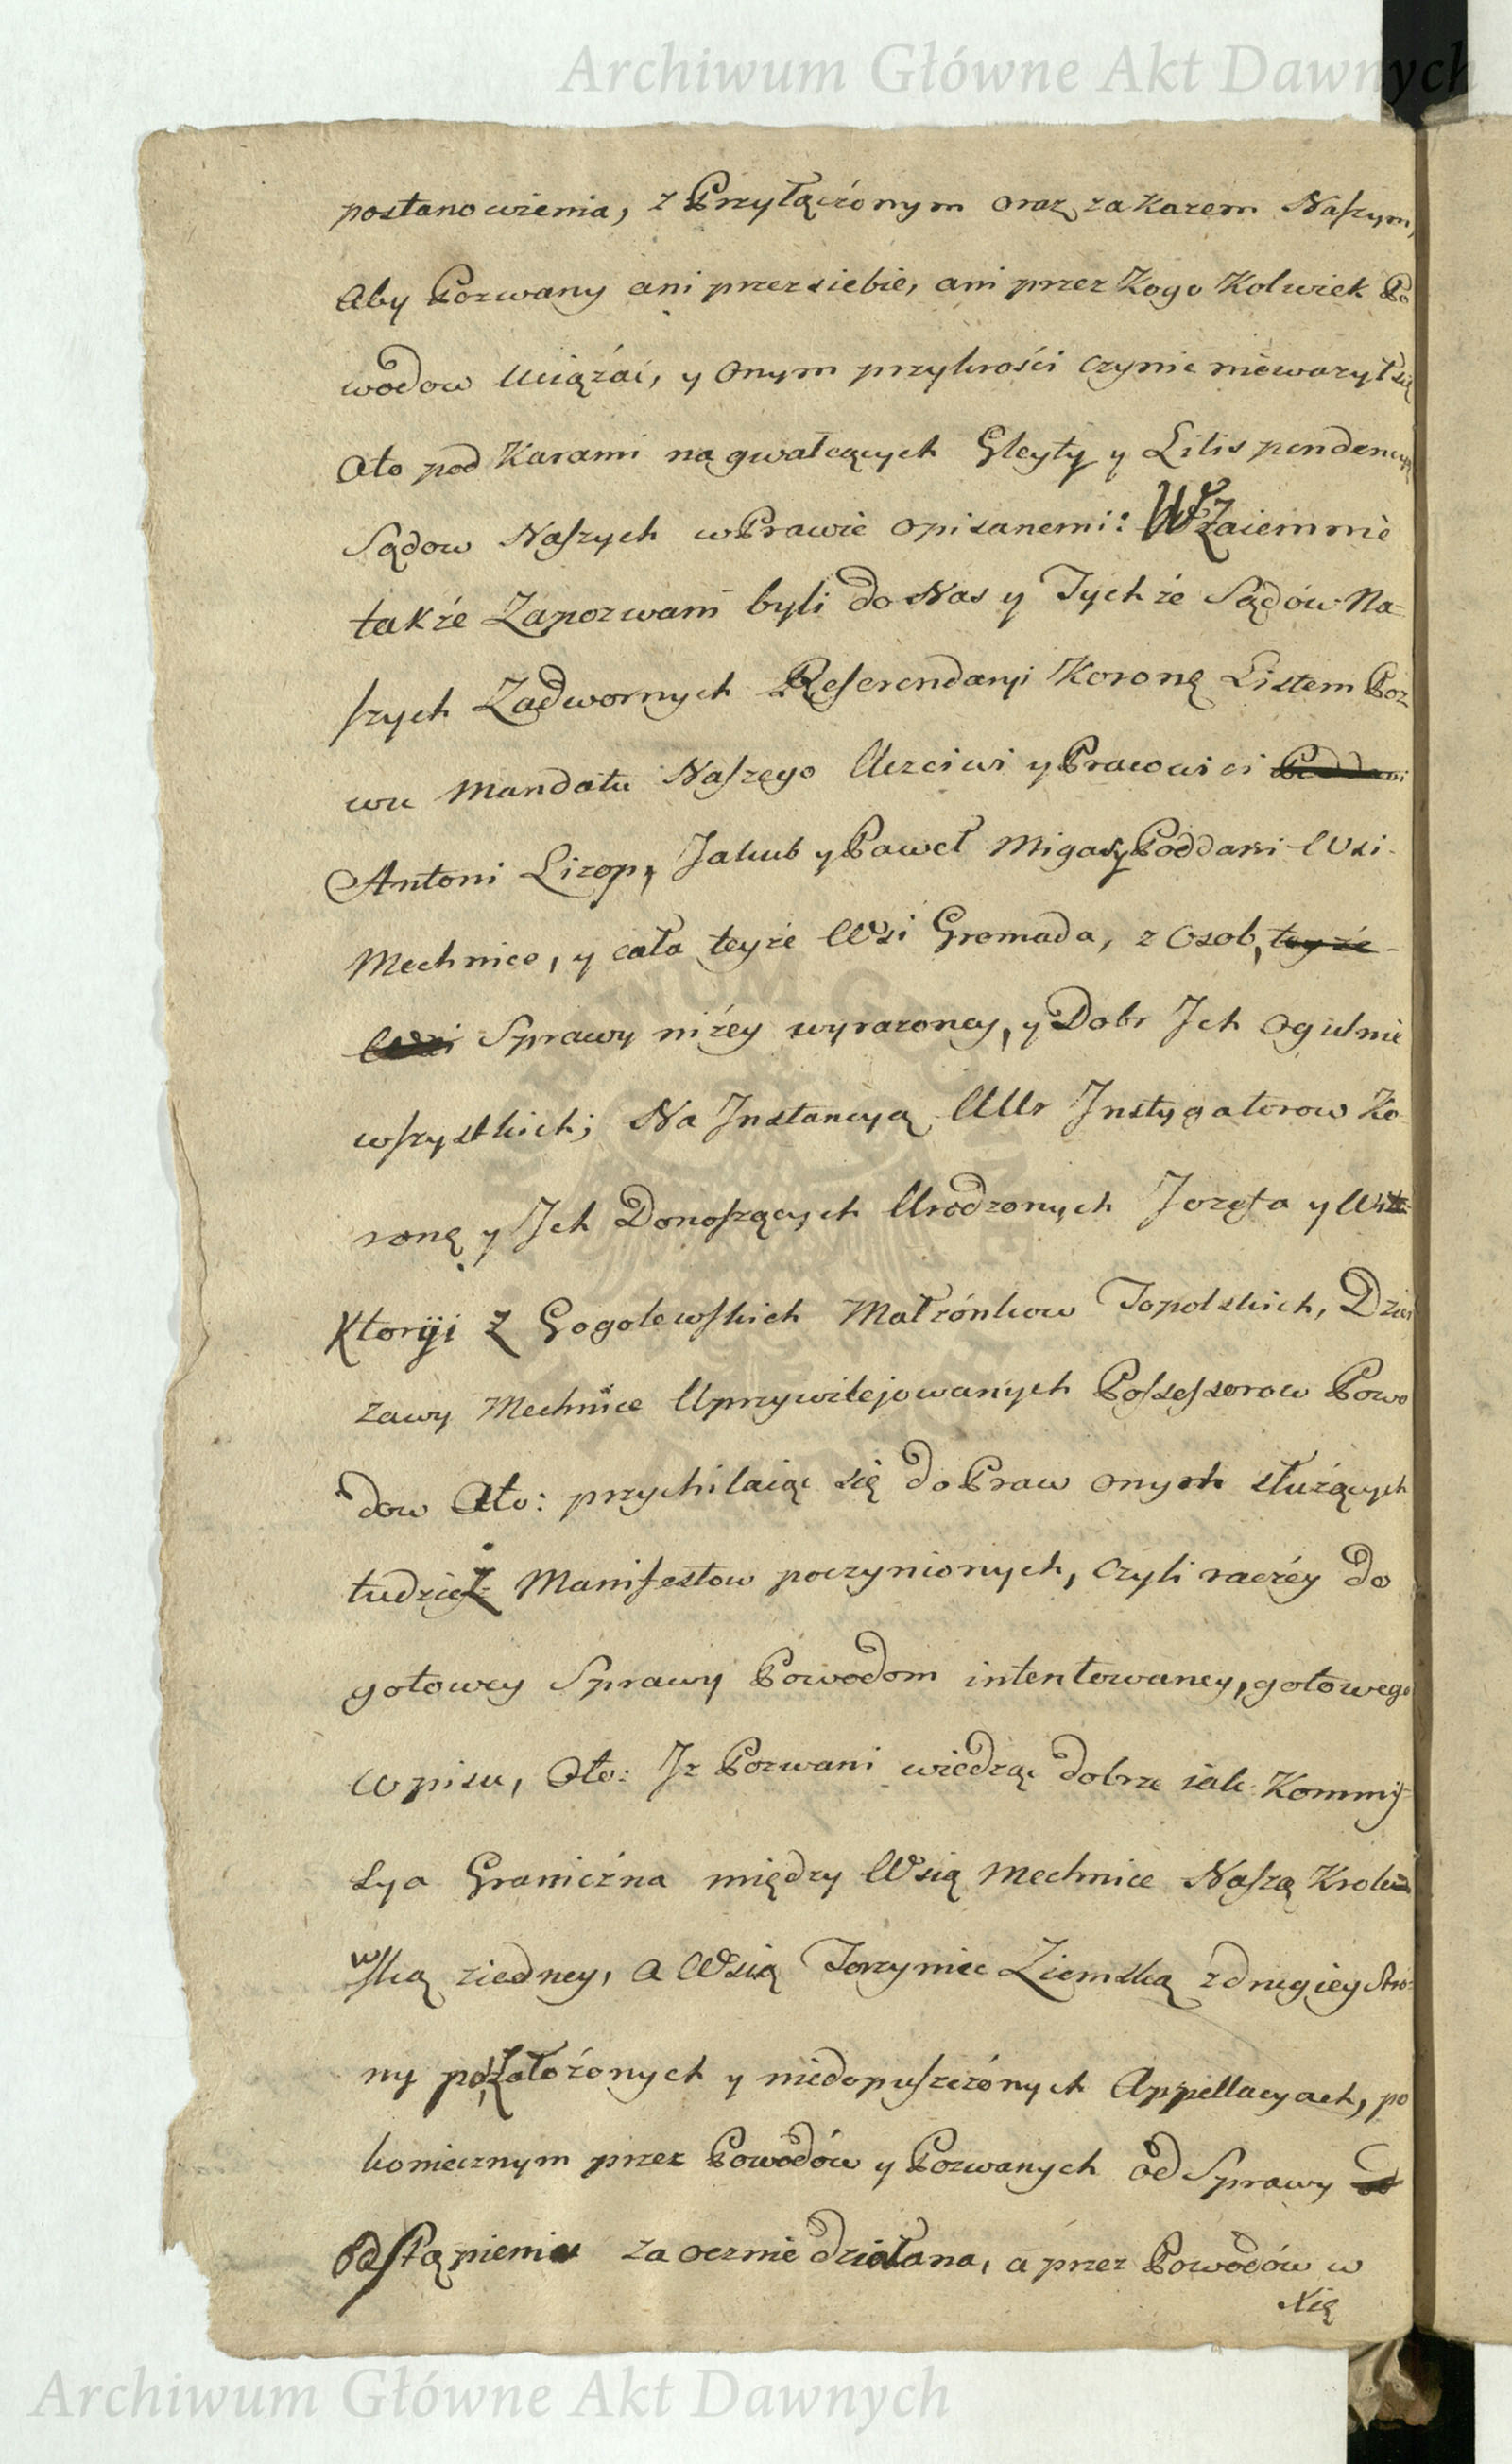 Archiwum Główne Akt Dawnych
postanowienia, z Przyłączonym oraz zakazem Naszym,
Aby Pozwany ani przez siebie, ani przez Kogo Kolwiek Po
wodow Uciążać, y Onym przykrości czynić nieważył się
Oto pod Karami na gwałcących Gleyty y Litis pendencyą
Sądow Naszych w Prawie opisanemi: Wzaiemnie
także Zapozwani byli do Nas y Tychże Sądów Na=
szych Zadwornych Referendaryi Koronę Listem Poz
wu Mandatu Naszego Uczciwi y Pracowici Poddani
Antoni Lizop, Jakub y Paweł Migasy Poddani Wsi
Mechnice, y cała teyże Wsi Gromada, z Osob, teyże
Wsi Sprawy niżey wyrazoney, y Dobr Ich Ogulnie
wszystkich; Na Instancyą UUr Instygatorow Ko
ronę y Ich Donoszących Urodzonych Jozefa y Wik
ktoryi z Gogolewskich Małżonkow Topolskich, Dzier
zawy Mechnice Uprzywilejowanych Possessorow Powo
dow Oto: przychilaiąc się do Praw onych służących
tudzież Manifestow poczynionych, czyli raczéy do
gotowey Sprawy Powodom intentowaney, gotowego
Wpisu, Oto: Iz Pozwani wiedząc dobrze iak Kommis=
sya Graniczna między Wsią Mechnice Naszą Krolew
wską ziedney, a Wsią Torzyniec Ziemską z drugiey stro=
ny po założonych y niedopuszczonych Appellacyach, po
koniecznym przez Powodów y Pozwanych od Sprawy
Odstąpieniu zaocznie działana, a przez Powodów w
Nię
Archiwum Główne Akt Dawnych